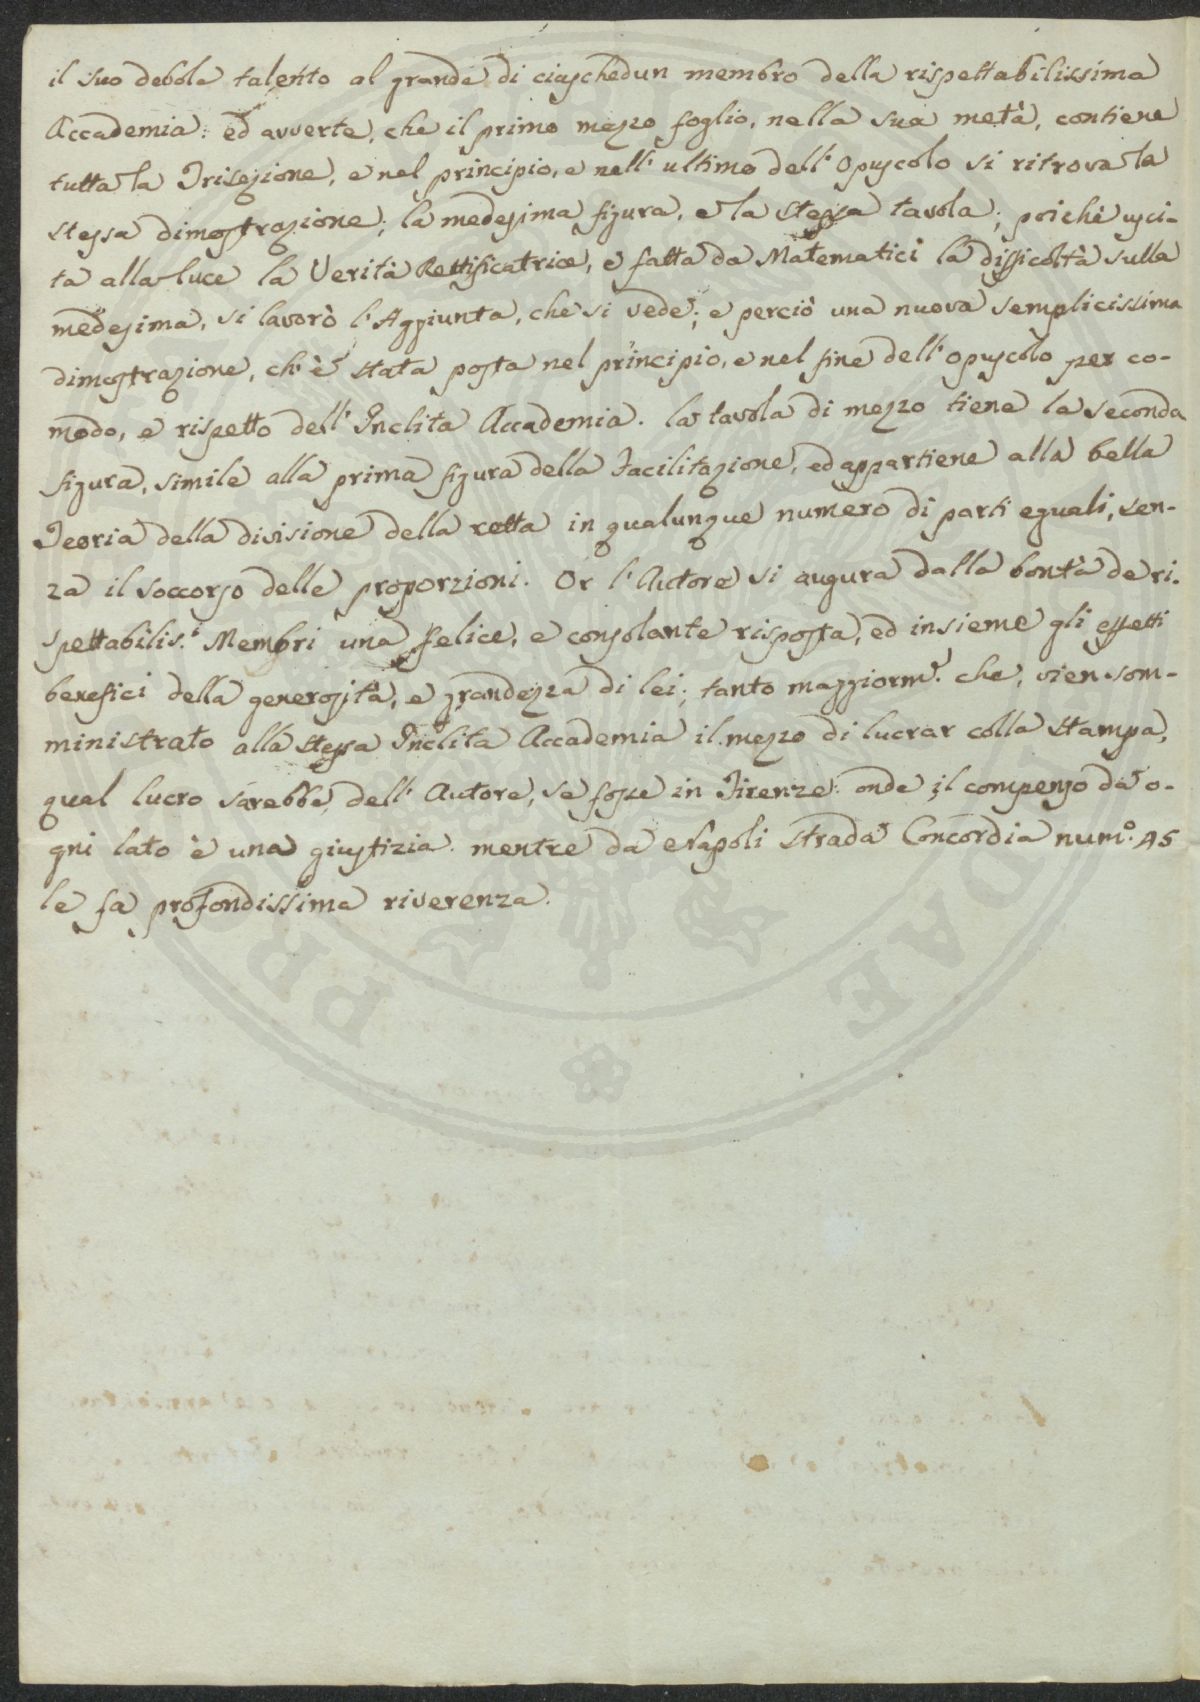 il suo debole talento al grande di ciaschedun membro della rispettabilissima
Accademia: ed avverte, che il primo mezzo foglio, nella sua metà, contiene
tutta la Trisezione, e nel principio, e nell'ultimo dell'Opuscolo si ritrova la
stessa dimostrazione; la medesima figura, e la stessa tavola; poichè usci-
ta alla luce la Verità Rettificatrice, e fatta da Matematici la difficoltà sulla
medesima, si lavorò l'Aggiunta, che si vede; e perciò una nuova semplicissima
dimostrazione, ch'è stata posta nel principio, e nel fine dell'opuscolo per co-
modo, e rispetto dell'Inclita Accademia. la tavola di mezzo tiene la seconda
figura, simile alla prima figura della Facilitazione, ed appartiene alla bella
Teoria della divisione della retta in qualunque numero di parti eguali, sen-
za il soccorso delle proporzioni. Or l'Autore si augura dalla bontà de ri-
spettabilis.i Membri una felice, e consolante risposta, ed insieme gli effetti
benefici della generosità, e grandezza di lei; tanto maggiorm.e che, vien som-
ministrato alla stessa Inclita Accademia il mezzo di lucrar colla stampa,
qual lucro sarebbe dell'Autore, se fosse in Firenze: onde il compenso da o-
gni lato è una giustizia. mentre da Napoli strada Concordia num.o 45
le fa profondissima riverenza.
PRO
DAE